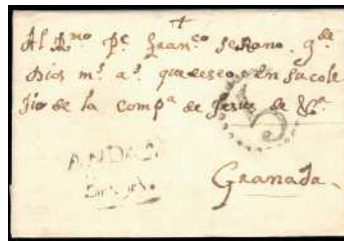 Al Rmo Pe. Franco Serrano. gde
Dios ms. as. que deseo en su cole
Jio de la compa de Jesus de &a
5
ANDAS
Granada